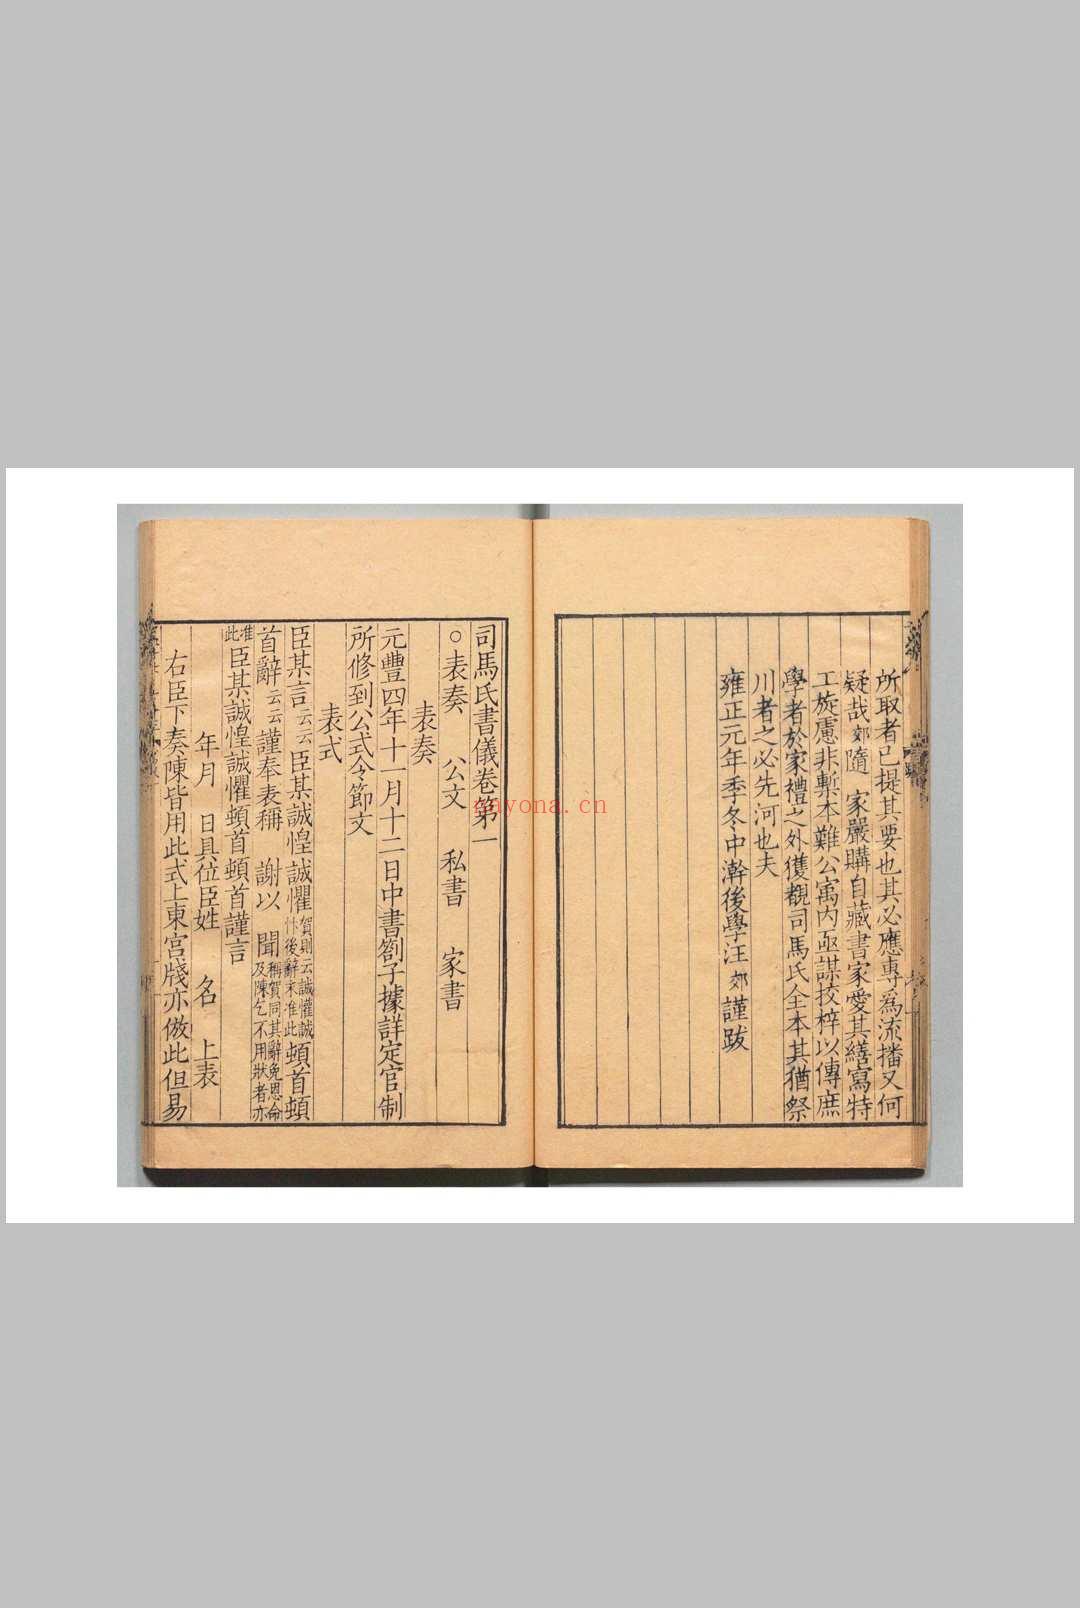 所取者已提其要也其必應專為流播又何
疑哉郊隨 家嚴購自藏書家愛其繕寫特
工旋慮非槧本難公寓內亟謀挍梓以傳庶
學者於家禮之外獲觀司馬氏全本其猶祭
川者之必先河也夫
雍正元年季冬中澣後學汪郊謹跋
司馬氏書儀卷第一
○表奏 公文 私書 家書
表奏
元豐四年十一月十二日中書劄子據詳定官制
所修到公式令節文
表式
臣某言云云臣某誠惶誠懼賀則云誠懽誠忭後辭末准此頓首頓
首辭云云謹奉表稱 謝以 聞稱賀同其辭免恩命及陳乞不用狀者亦
准此臣某誠惶誠懼頓首頓首謹言
年月 日具位臣姓 名 上表
右臣下奏陳皆用此式上東宮牋亦倣此但易
nayona.cn